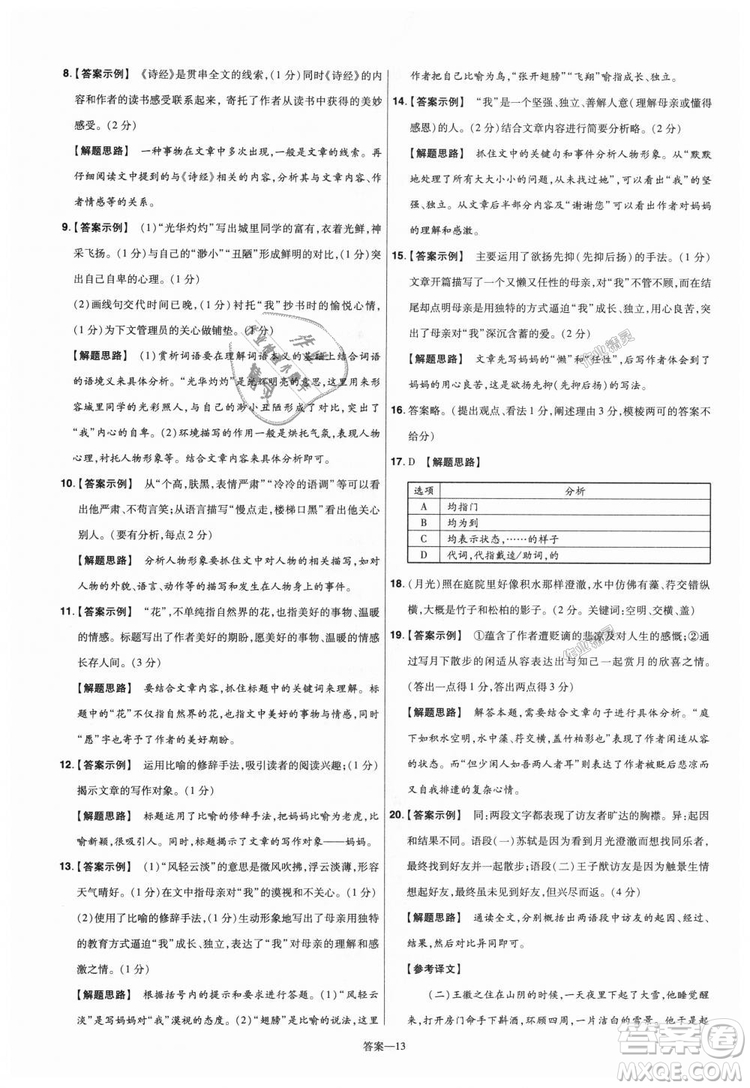 8.【答案示例】 《诗经》是贯串全文的线索,(1分)同时《诗经》的内
容和作者的读书感受联系起来,寄托了作者从读书中获得的美妙
感受。(2分)
【解题思路】 一种事物在文章中多次出现,一般是文章的线索。再
仔细阅读文中提到的与《诗经》有关的内容,分析其在表现人物、作
者情感等的关系。
9.【答案示例】 (1)“光华灼灼”写出城里同学的富有,衣着光鲜,神
采飞扬。(1分)与自己的“渺小”“丑陋”形成鲜明的对比,(1分)突
出自己自卑的心理。(1分)
(2)画线句交代时间已晚,(1分)衬托“我”抄书时的愉悦心情,(1
分)为下文管理员的关心做铺垫。(1分)
【解题思路】 (1)赏析词语要在理解词语本义的基础上结合词语
的语境进行分析。“光华灼灼”是光泽坏明亮的意思,在文中用来形
容城里同学的光彩照人,与自己的渺小丑陋形成了对比,突出了
“我”内心的自卑。(2)环境描写的作用一般是烘托气氛,表现人物
心理,衬托人物形象等。
10.【答案示例】 从“个高,肤黑,表情严肃”“冷冷的语调”等可以看
出严肃、不苟言笑;(2分)从描写“慢点走,楼梯口黑”看出他关心
别人。(共2分,每点2分)
【解题思路】 分析人物形象要抓住文中对人物的相关描写,如人
物的外貌、语言、动作描写等,以及人物身上的事件。
11.【答案示例】 “花”,不单指自然界的花,也指美好的事物、温暖
的情感。标题写出了作者美好的期盼,愿美好的事物、温暖的情感
长存人间。(3分)
【解题思路】 要结合文章内容,抓住标题中的关键词来理解。标题
中的“花”,不仅指自然界的花,也指生活中美好的事情与情感,
“愿”字也写出了作者的美好期盼
12.【答案示例】 运用比喻的修辞手法,吸引读者的阅读兴趣;(1分)
揭示文章的写作对象。(1分)
【解题思路】 标题运用了比喻的修辞手法,把妈妈比喻为老虎,比
喻新颖,吸引读者。也交代了文章的写作对象——妈妈。
13.【答案示例】 (1)“风轻云淡”的意思是微风吹拂,浮云淡薄,形容
天气晴好。(1分)在文中指母亲对“我”的漠视和放任。(1分)
(2)使用了比喻的修辞手法,(1分)生动形象地写出了母亲用独特
的教育方式逼迫“我”成长、独立,表达了“我”对母亲的理解和感
激之情。(1分)
【解题思路】 根据括号内的提示和要求进行答题。(1)“风轻云
淡”是写妈妈对“我”漠视的态度。(2)“翅膀”是比喻的修辞手法,
作者把自己比喻为鸟,“张开翅膀”“飞翔”喻指成长、独立。
14.【答案示例】 “我”是一个坚强、独立、善解人意(理解母亲或懂得
感恩)的人。(2分)结合文章内容分析略。(1分)
【解题思路】 抓住文中的关键句和事件分析人物形象。从“默默
地处理了所有大大小小的问题,从未抱怨过她”,可以看出“我”的坚
强、独立。从文章后半部分内容及“谢谢您”可以看出作者对妈妈
的理解和感激。
15.【答案示例】 主要运用了欲扬先抑(先抑后扬)的手法。(1分)
文章开篇描写了一个又懒又任性的母亲,对“我”不管不顾,(1分)在
结尾却点明母亲是用独特的方式逼迫“我”成长、独立,用心良苦,
(1分)突出了母亲对“我”深沉含蓄的爱。(1分)
【解题思路】 文章先写妈妈的“懒”和“任性”,后文写出了
妈妈的用心良苦,这是欲扬先抑(先抑后扬)的写法。
16. 答案略。(提出观点、看法1分,阐述理由3分,模棱两可的答案不
给分)
17. D 【解题思路】
选项 分析
A 均指门
B 均为到
C 均表示状态,……的样子
D 代词,代指戴逵/助词,的
18. (月光)照在庭院里好像积水那样澄澈,水中仿佛有藻、荇交错纵
横,大概是竹子和松柏的影子吧。(2分。关键词:空明、横、盖)
19.【答案示例】 ①蕴含了作者遭贬谪的悲凉及对人生的感慨;②通
过写月下散步的闲适从容表达出与好友一起赏月的欣喜之情。
(答出一点得1分,答出两点得2分)
【解题思路】 解答本题,需要结合文章句子进行具体分析。“庭
下如积水空明,水中藻、荇交横,盖竹柏影也”表现了作者闲适从
容的状态。而“但少闲人如吾两人者耳”表达了作者被贬的悲凉、
自嘲、感慨的复杂心情。
20.【答案示例】 同:两段文字都表现了访友者旷达的胸襟。异:起因
和结果不同。语段(一)苏轼是因为看到月光澄澈而想共同乐者,
最终找到好友一起散步;语段(二)王子猷访友是因为触景生情
一时兴起,最终兴尽而返。(4分)
【解题思路】 通读全文,分别概括出两语段中访友的起因、结果,
得出对比异同即可。
【参考译文】
(二)王徽之住在山阴的时候,一天夜里下起大雪,他睡觉醒
来,打开房门命手下斟酒,环顾四周,一片洁白的雪景。于是起身
答案—13